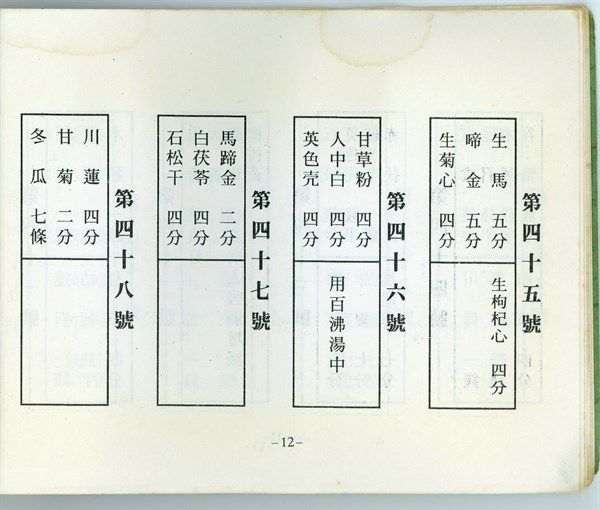 第四十五號
生馬 五分
啼金 五分
生菊心 四分
生枸杞心 四分
第四十六號
甘草粉 四分
人中白 四分
英色壳 四分
用百沸湯中
第四十七號
馬蹄金 二分
白茯苓 四分
石松干 四分
第四十八號
川蓮 四分
甘菊 二分
冬瓜七條
–12–